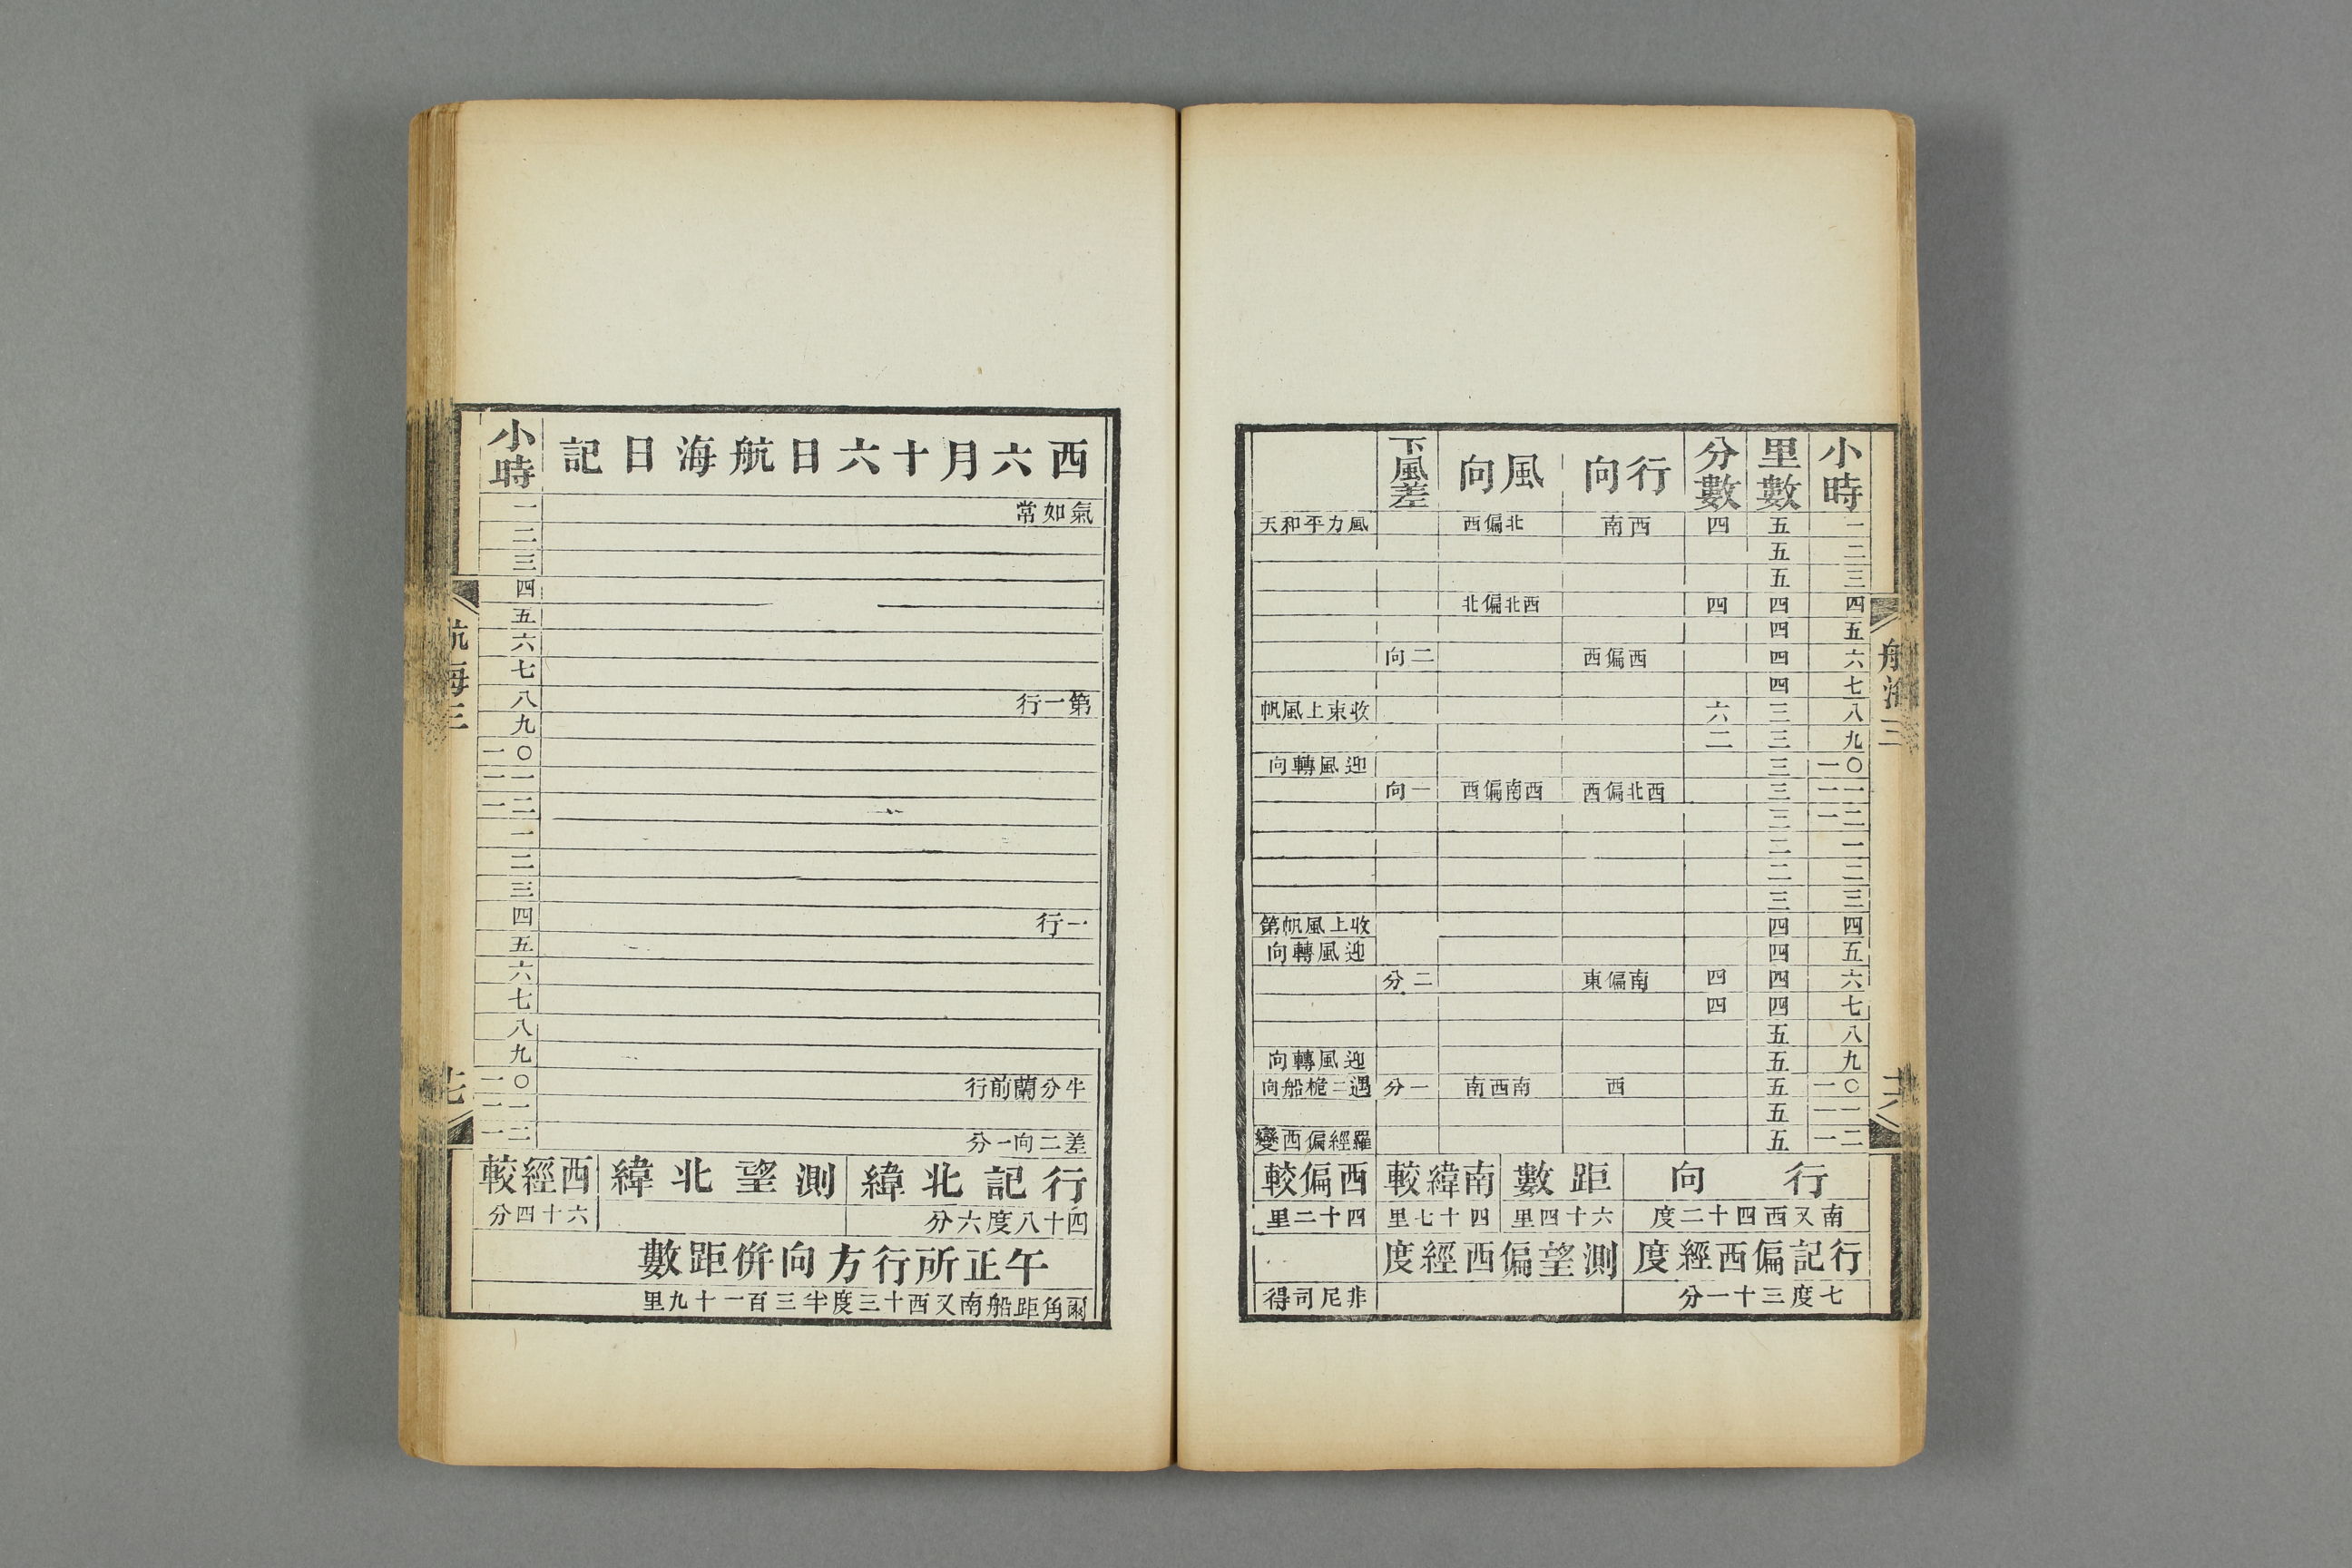 航海三
十六
小時 里數 分數 行向 風向 下風差
一 五 四 西南 北偏西 風力平和天
二 五
三 五
四 四 四 西北偏北
五 四
六 四 西偏西 二向
七 四
八 三 六 收束上風帆
九 三 二
一〇 三 迎風轉向
一一 三 西北偏西 西南偏西 一向
一二 三
一 二
二 二
三 三
四 四 收上風帆第
五 四 迎風轉向
六 四 四 南偏東 二分
七 四 四
八 五
九 五 迎風轉向
一〇 五 西 南西南 一分 遇二桅船向
一一 五
一二 五 羅經偏西變
行向 距數 南緯較 西偏較
南又西四十二度 六十四里 四十七里 四十二里
行記偏西經度 測望偏西經度
七度三十一分 非尼司得
西六月十六日航海日記 小時
氣如常 一
二
三
四
五
六
七
第一行 八
九
一〇
一一
一二
一
二
三
一行 四
五
六
七
八
九
牛分蘭前行 一〇
一一
差二向一分 一二
行記北緯 測望北緯 西經較
四十八度六分 六十四分
午正所行方向併距數
爾角距船南又西十三度半三百一十九里
航海三